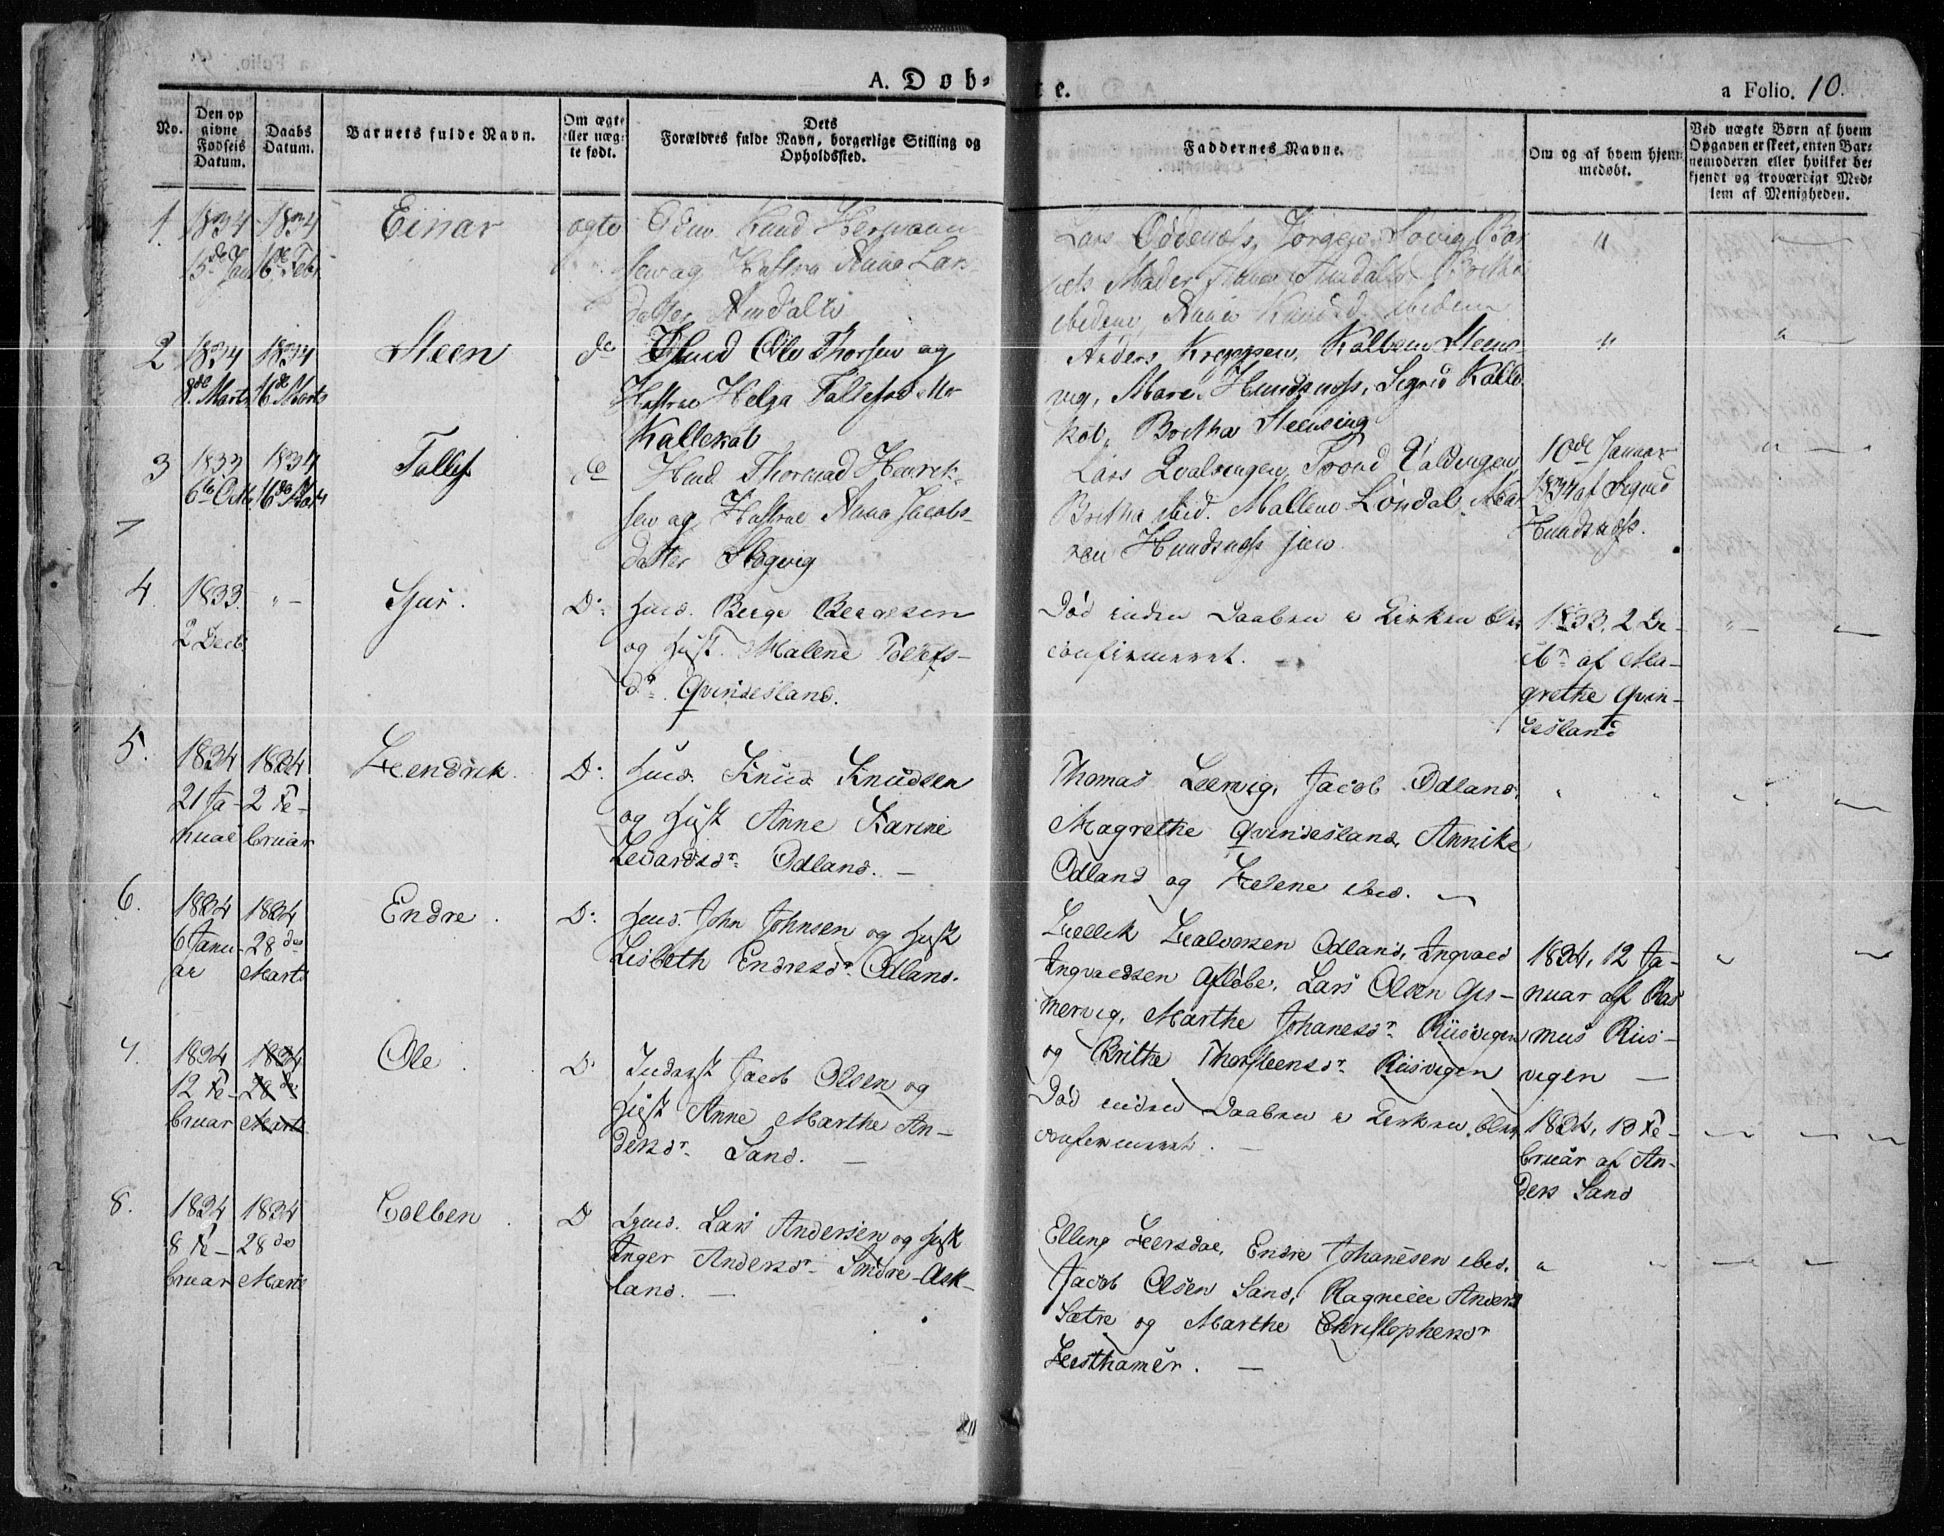 A. Døb=
te.
a Folio. 10.
No.
Den op
givne
Fødsels
Datum.
Daabs
Datum.
Barnets fulde Navn.
Om ægte
eller uæg-
te født.
Dets
Forældres fulde Navn, borgerlige Stilling og
Opholdssted.
Faddernes Navne.
Om og af hvem hjem-
medøbt.
Ved uægte Børn af hvem
Opgaven er skeet, enten Bar-
nemoderen eller hvilket be-
kjendt og troværdigt Med-
lem af Menigheden.
1.
1834
1834
16 Febr
Einar
ægte
Knud Hermann
sen og Hustru Anna Lars
datter
Lars Jørgen
2
1834
8de Marts
1834
16de Marts
Steen
do
Ole Thorsen og
Hustrue Helga
Kallekod
Anders Kolben Steens-
vig, Maren Hundsnæss, Sigrid Kalle
kod, Brita Steensvig
3
1833
6te Octb.
1834
16de Marts
Tollef
do
Hmd Thormod Henrik-
sen og Hustrue Anna Jacobs-
datter Skogvig
Lars Trond
Britha ibid. Mallene Løndal, Ma-
ren Hundsnæss
10de Januar
1834 af Sigrid
Hundsnæss.
7
4.
1833.
2 Decb.
" -
Sjur.
Do
Huusd. Berge Bergesen
og Hust. Malene Tollefs-
dr. Qvindesland.
Død inden Daaben i Kirken blev
confirmeret.
1833, 2 De-
cbr af Ma-
grethe Qvin-
desland
5.
1834
21 Ja-
nuar
1834
2 Fe-
bruar
Hendrik.
Do
Huusd. Knud Knudsen
og Hust Anne Karine
Odland. —
Thomas Leervig, Jacob Odland,
Magrethe Qvindesland, Annike
Odland og Helene ibid. —
6.
1834
6 Janu-
ar
1834
28de
Marts
Endre.
Do
Huusd. John Johnsen og Hust
Lisbeth Endresdr. Odland.
Halvorsen Odland, Ingvald
Ingvaldsen Lars Olsen Ges-
mervig, Marthe Johanesdr. Riisvigen
og Brithe Thorsteensdr. Riisvigen
1834, 12 Ja-
nuar af Ras
mus Riis-
vigen —
7.
1834
12 Fe-
bruar
1834
28de
Marts
Ole
Do
Inderst Jacob Olsen og
Hust Anne Marthe An-
dersdr. Sand. —
Død inden Daaben i Kirken blev
confirmeret. —
1834, 13 Fe-
bruar af An-
ders Sand
8.
1834
8 Fe-
bruar
1834
28de
Marts
Colben.
Do
Huusd. Lars Andersen og Hust
Inger Andersdr. Søndre-Ask-
land. —
Elling Hersdal, Endre Johanesen ibid.
Jacob Olsen Sand, Ragnille Anders
Sætre og Marthe Christophersdr
Hesthamer. —